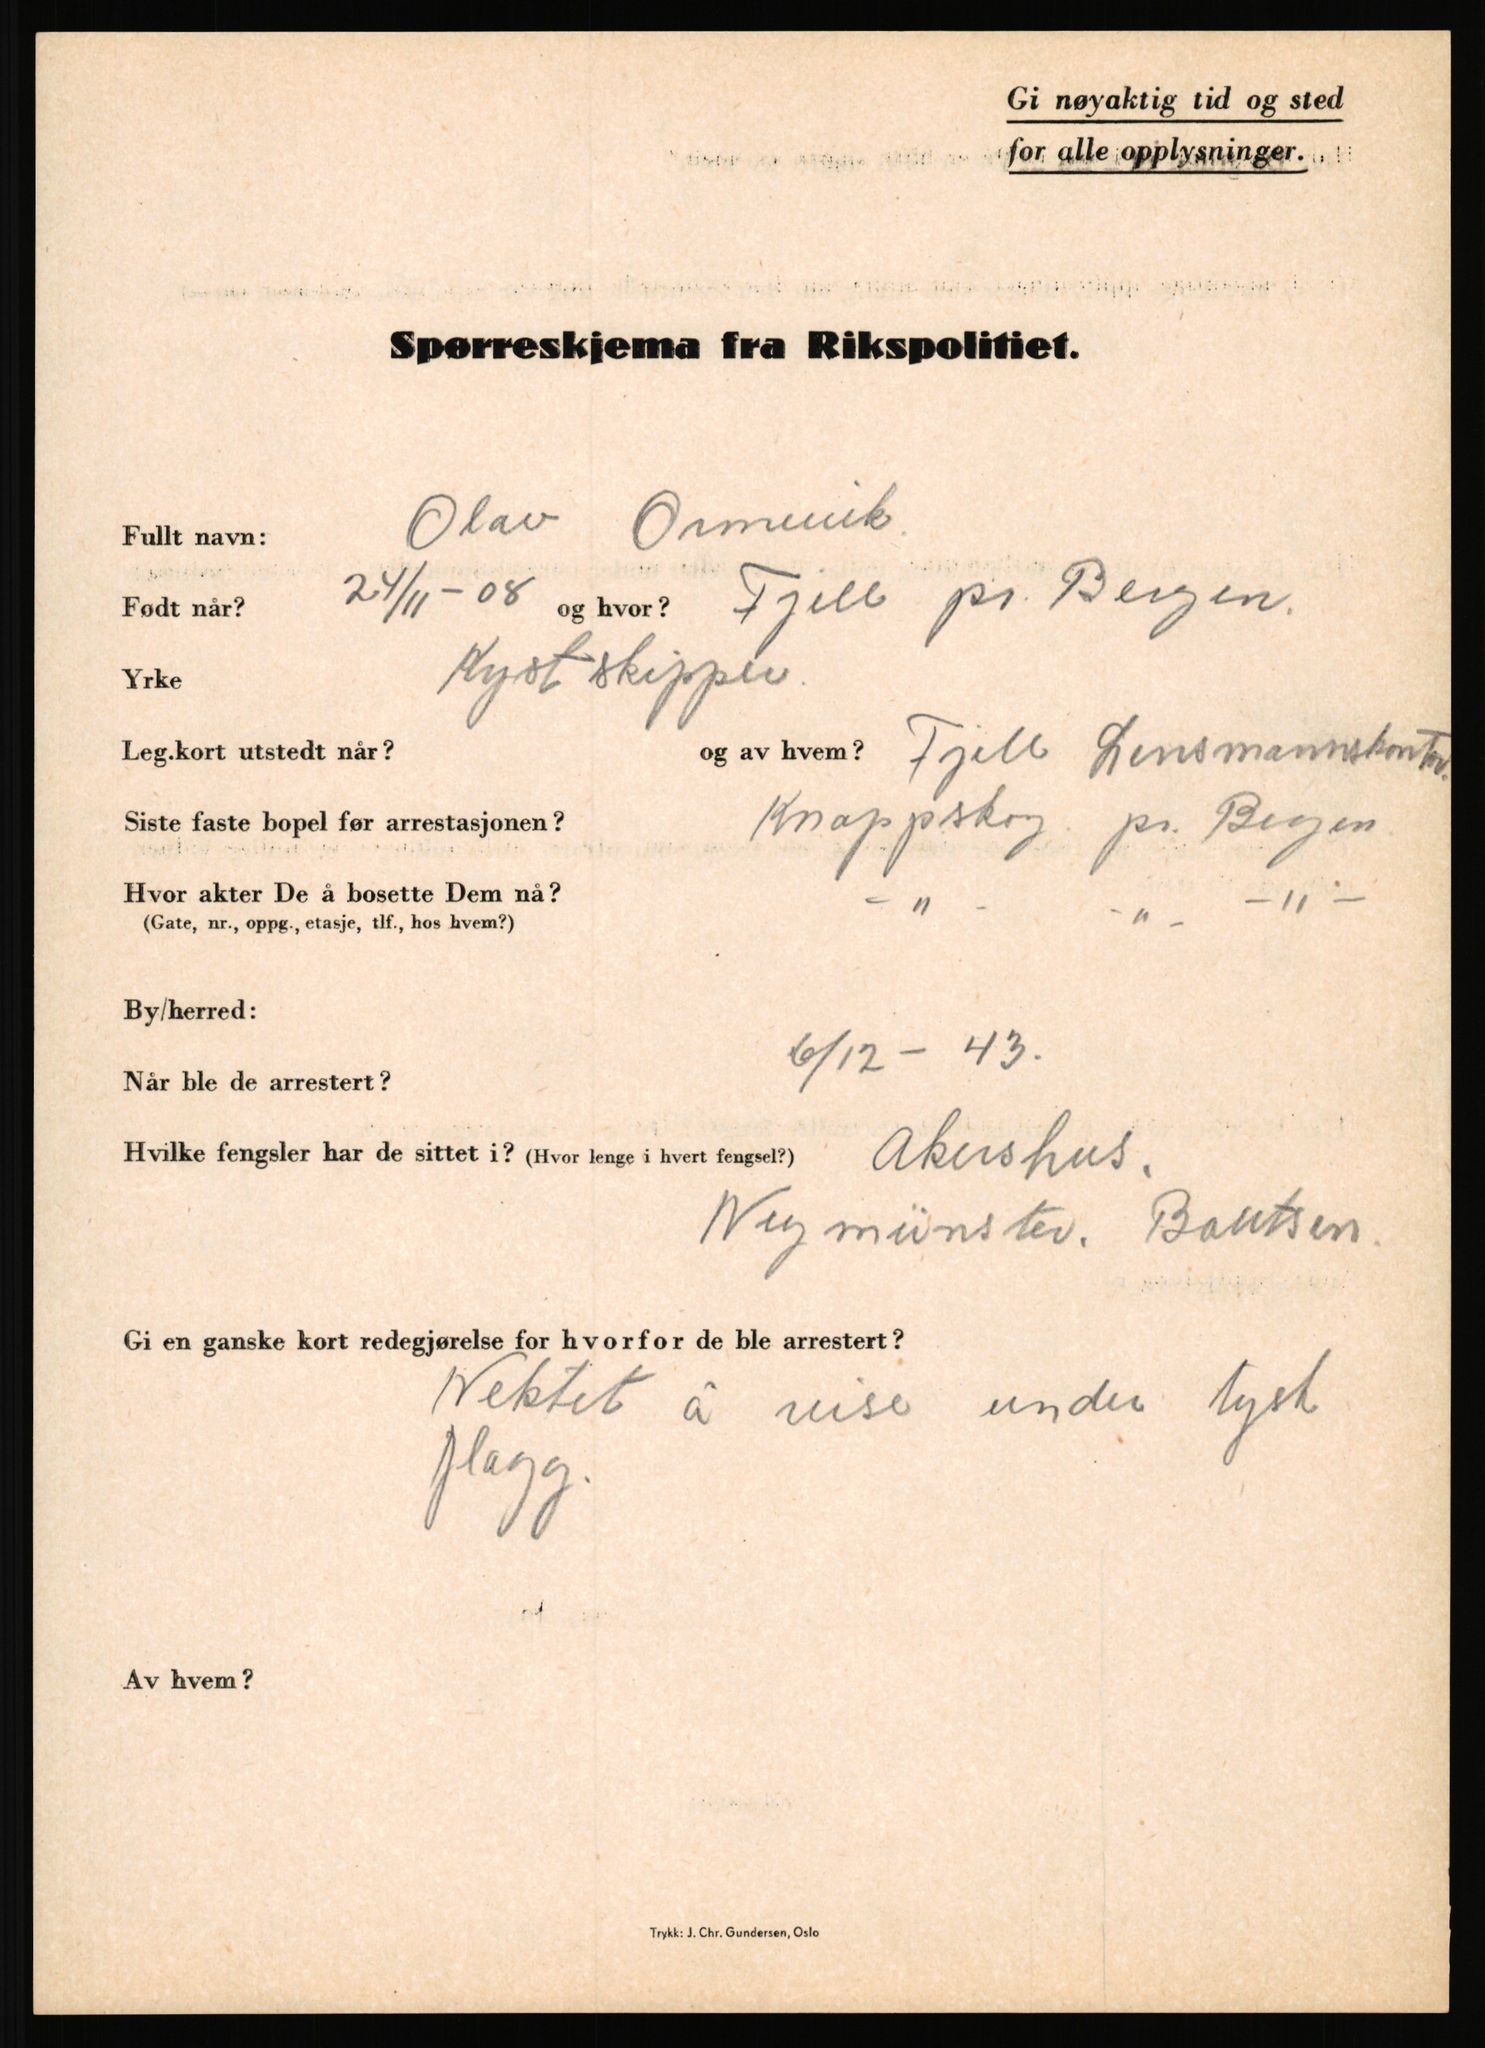 Gi nøyaktig tid og sted
for alle opplysninger.
Spørreskjema fra Rikspolitiet.
Fullt navn: Olav Ormvik.
Født når? 24/11-08 og hvor? Fjell pr. Bergen.
Yrke Kystskipper.
Leg.kort utstedt når? og av hvem? Fjell Lensmannskontor.
Siste faste bopel før arrestasjonen? Knappskog pr. Bergen
Hvor akter De å bosette Dem nå? - " - - " - - " -
(Gate, nr., oppg., etasje, tlf., hos hvem?)
By/herred:
Når ble de arrestert? 6/12 - 43.
Hvilke fengsler har de sittet i? (Hvor lenge i hvert fengsel?) Akershus.
Neymünster. Boutsen.
Gi en ganske kort redegjørelse for hvorfor de ble arrestert?
Nektet å reise under tysk
flagg.
Av hvem?
Trykk: J. Chr. Gundersen, Oslo